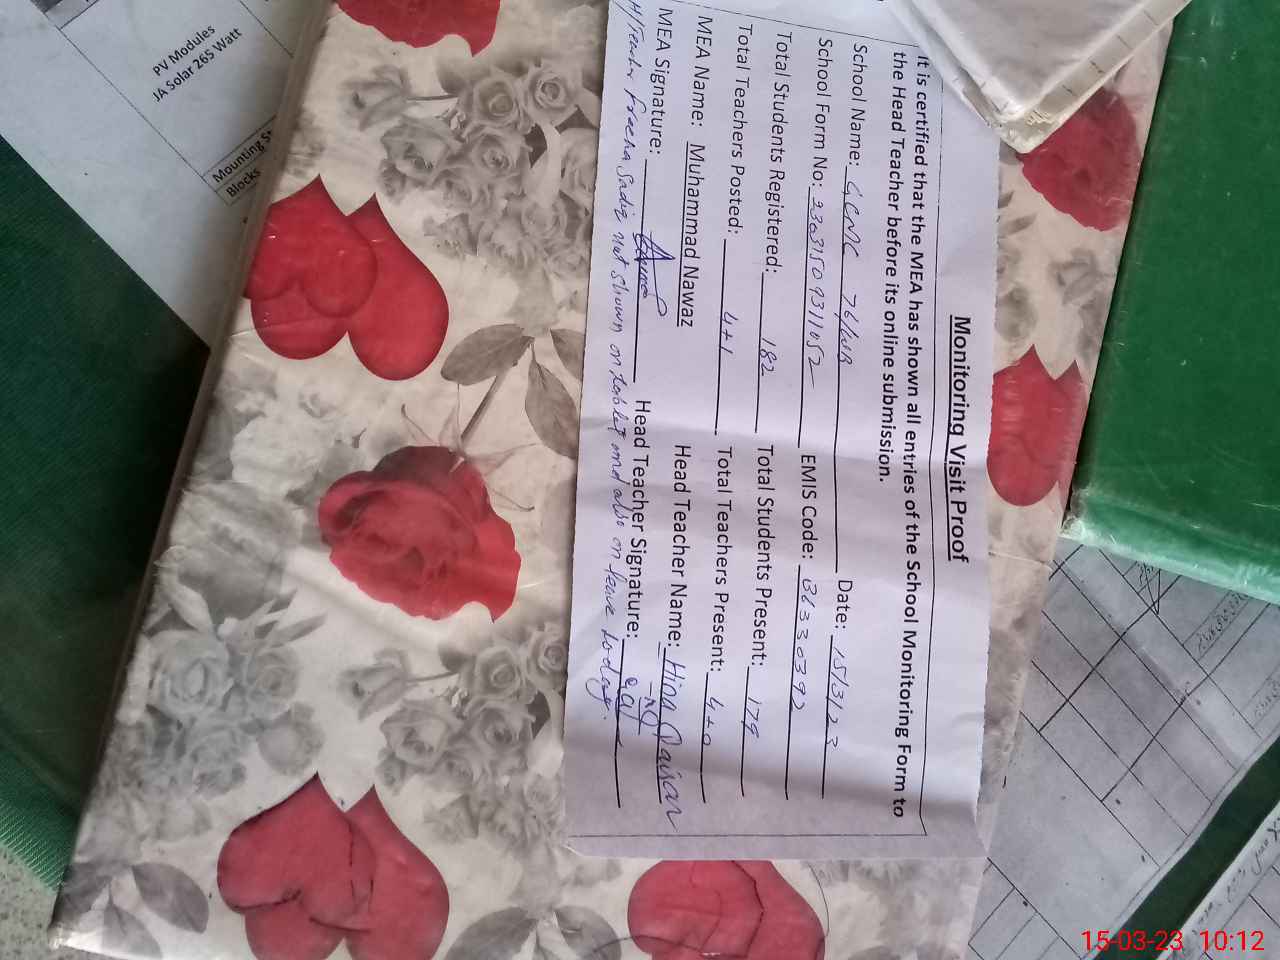 Monitoring Visit Proof
It is certified that the MEA has shown all entries of the School Monitoring Form to
the Head Teacher before its online submission.
School Name: GCMC 76/WB Date: 15/3/23
School Form No: 23031509311052 EMIS Code: 36330392
Total Students Registered: 182 Total Students Present: 179
Total Teachers Posted: 4+1 Total Teachers Present: 4+0
MEA Name: Muhammad Nawaz Head Teacher Name: Hina
MEA Signature: Head Teacher Signature:
Sadiq not shown on tablet and also on leave today.
PV Modules
JA Solar 265 Watt
Mounting
Blocks
15-03-23 10:12